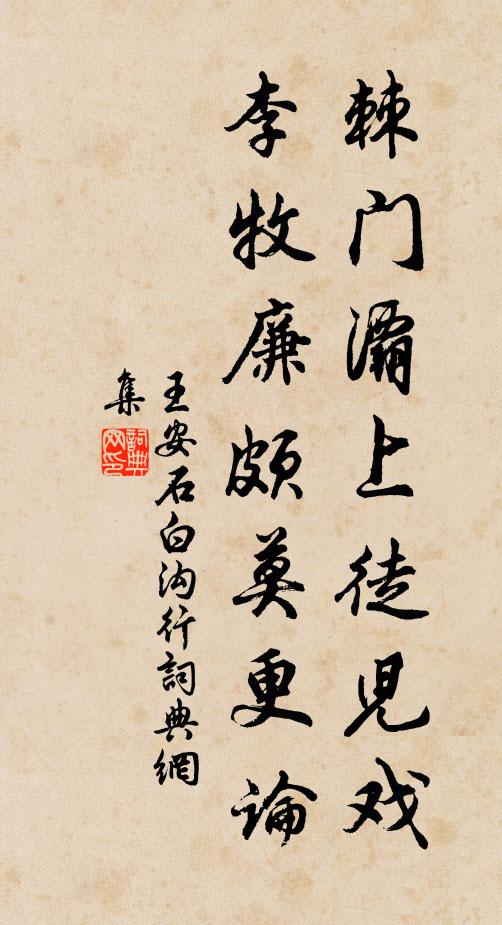 棘门灞上徒児戏
李牧廉颇莫更論
王安石白沟行詞典網
集
詞典
网印